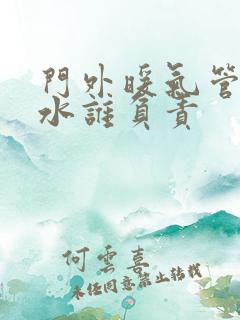 門外暖氣管
水誰負責
何雲喜
未经同意禁止转载